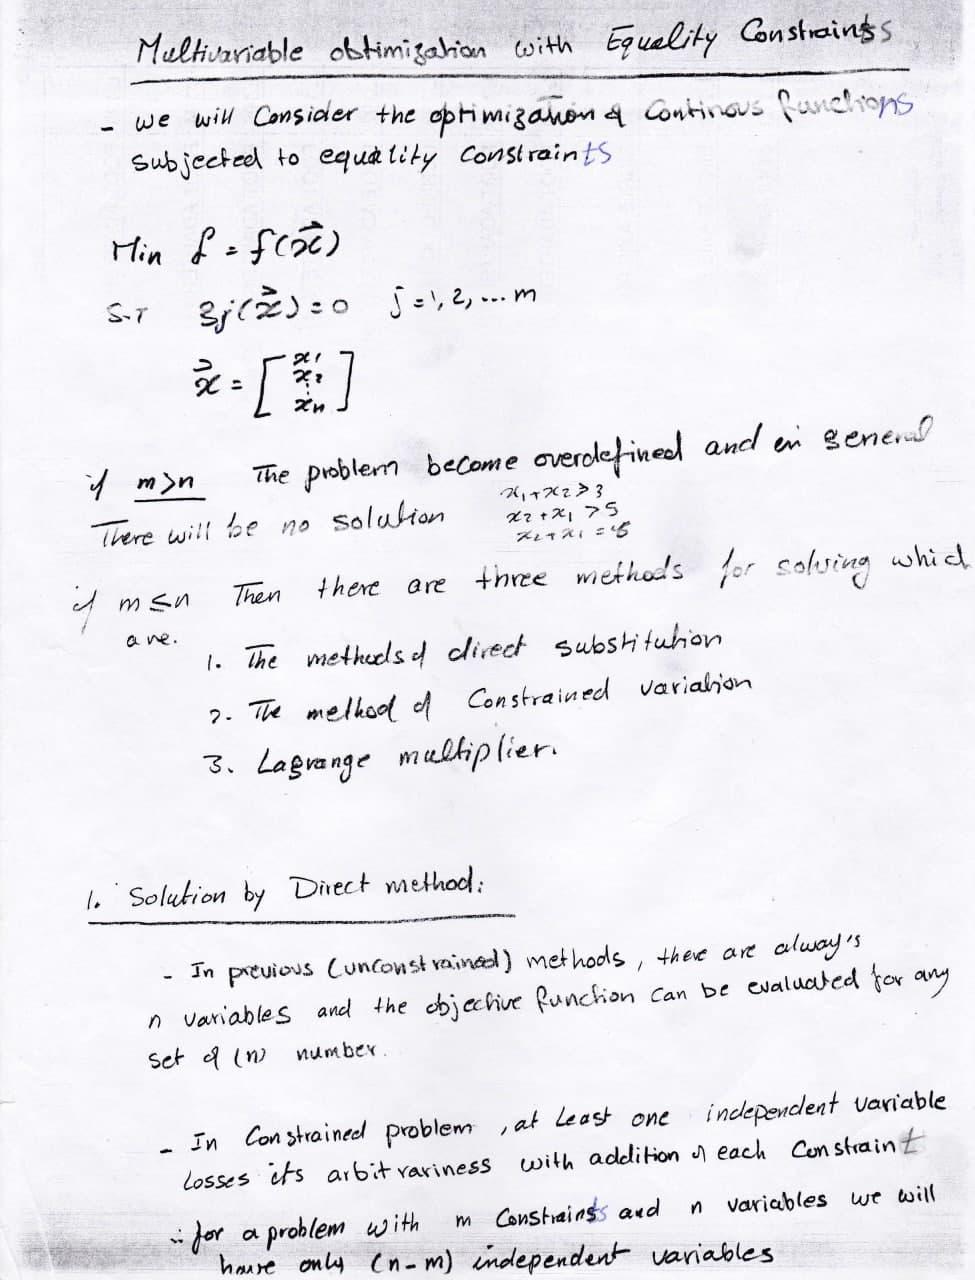 Multivariable obtimization with Equality Constraints
- we will Consider the optimization of Continous functions
subjected to equality constraints
Min f = f(x⃗)
S.T gj(x⃗) = 0 j = 1, 2, ... m
x⃗ = [x1 x2 ⋮ xn]
if m>n The problem become overdefined and in general
There will be no solution
x1+x2 ≥ 3
x2+x1 > 5
x2+x1 =
if m≤n Then there are three methods for solving which
are.
1. The methods of direct substitution
2. The method of Constrained variation
3. Lagrange multiplier.
1. Solution by Direct method:
- In previous (unconstrained) methods, there are alway's
n variables and the objective function can be evaluated for any
set of (n) number.
- In Constrained problem, at least one independent variable
Losses its arbitrariness with addition of each Constraint
∴ for a problem with m Constraints and n variables we will
have only (n-m) independent variables